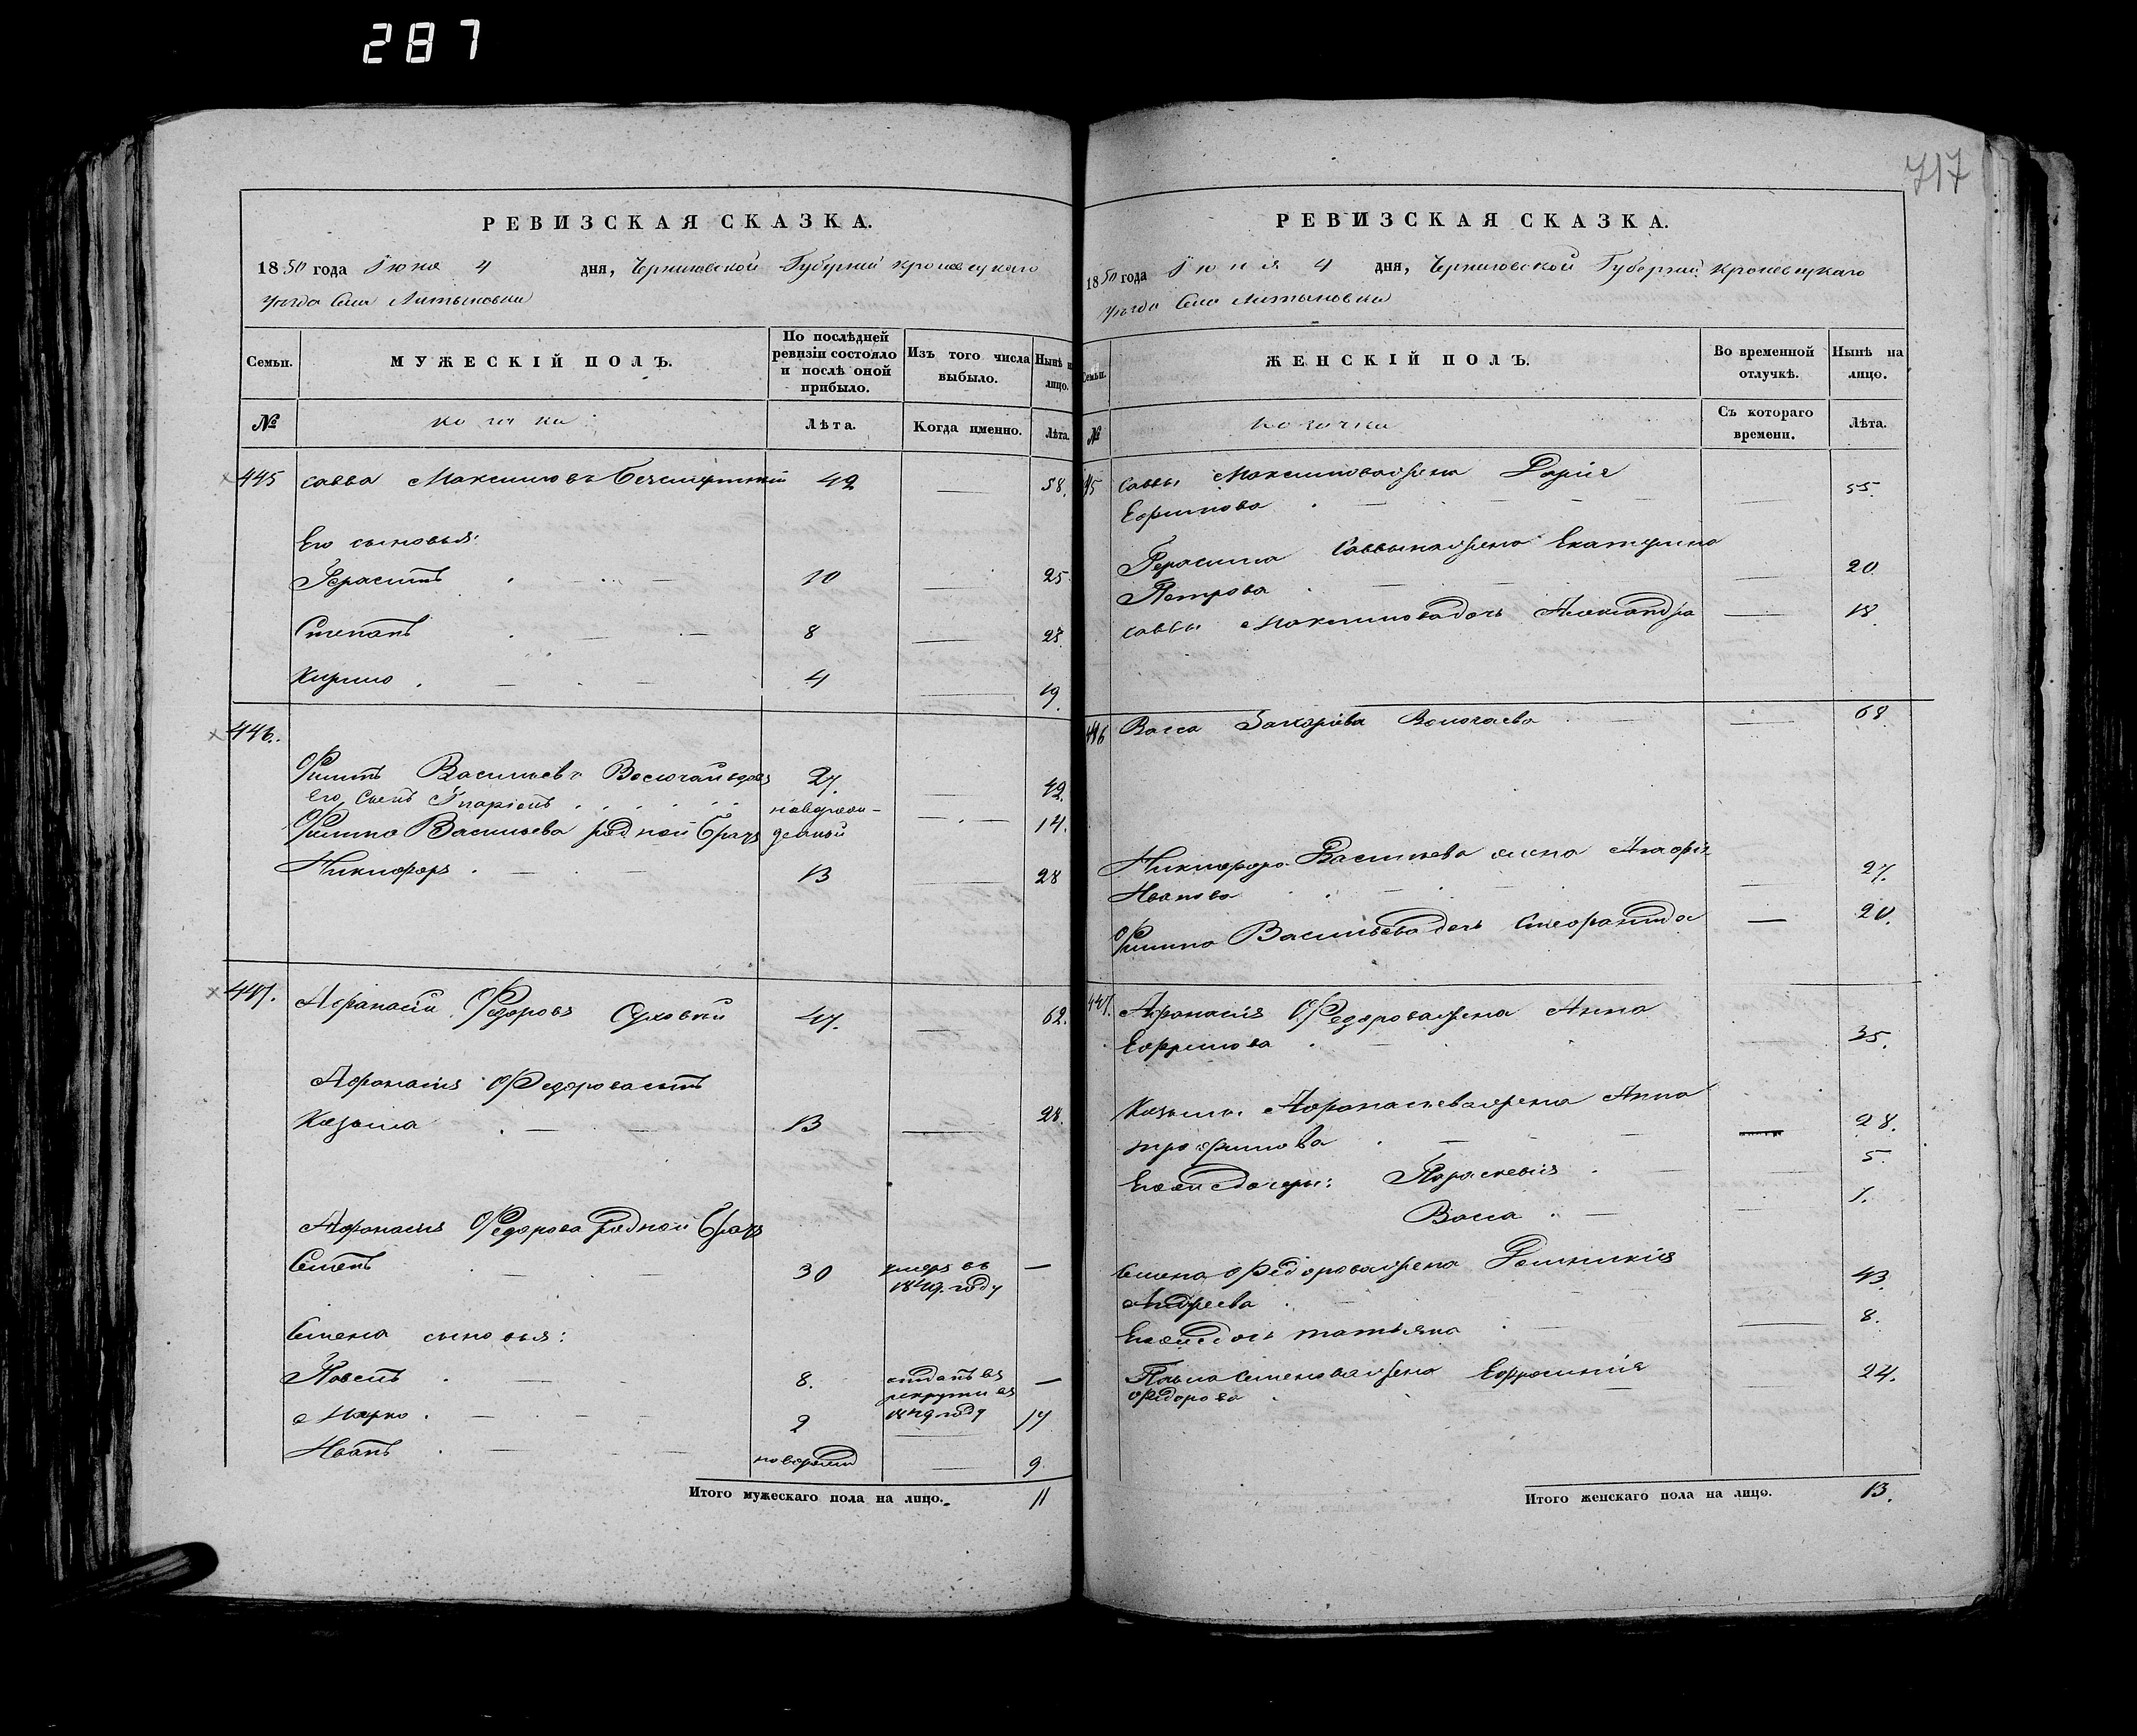 287
717
РЕВИЗСКАЯ СКАЗКА.
1850 года Июня 4 дня, Черниговской Губернии Кролевецкаго
уезда Села Литвиновки
Семьи.
МУЖЕСКІЙ ПОЛЪ.
По послѣдней ревизіи состояло и послѣ оной прибыло.
Изъ того числа выбыло.
Нынѣ н лицо.
№
козаки
Лѣта.
Когда именно.
Лѣта.
445 Савва Максимовъ 42 — 58.
Его сыновья:
Герасимъ 10 — 25
Степанъ 8 — 23.
Кирило 4 — 19.
446.
Филипъ Васильевъ 27. — 42.
его сынъ новорож-
Филипа Васильева родной братъ денный — 14.
Никифоръ 13 — 28
447. Афанасий Федоровъ 47. — 62.
Афанасия Федорова сынъ
Козьма 13 — 28.
Афанасия Федорова родной братъ
Семенъ 30 умеръ въ —
1849. году
Семена сыновья:
Павелъ 8. отданъ въ —
рекруты въ
Марко 2 1849 году 17
Иванъ новорожд — 9
Итого мужескаго пола на лицо. 11
РЕВИЗСКАЯ СКАЗКА.
1850 года Июня 4 дня, Черниговской Губернии Кролевецкаго
уезда Села Литвиновки
Семьи.
ЖЕНСКІЙ ПОЛЪ.
Во временной отлучкѣ.
Нынѣ на лицо.
№
козачки
Съ котораго времени.
Лѣта.
45 Саввы Максимова жена Дария
Ефимова — 55.
Герасима Саввина жена Екатерина
Петрова — 20.
Саввы Максимова дочь Александра — 18.
446 Васса Захариева — 68
Никифора Васильева жена Агафия
Иванова — 27.
Филипа Васильева дочь Стефанида — 20.
447. Афанасия Федорова жена Анна
Ефимова — 35.
Козьмы Афанасиева жена Анна
Трофимова — 28.
Его же дочери: Параскевия — 5.
Васса — 1.
Семена Федорова жена
Андреева — 43.
Его же дочь Татьяна — 8.
Павла Семенова жена Ефросиния — 24.
Федорова
Итого женскаго пола на лицо. 13.